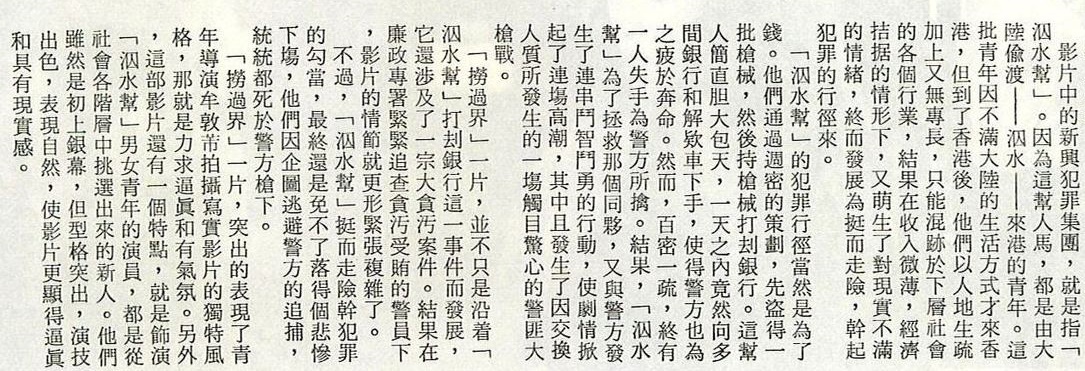 影片中的新興犯罪集團，就是指「
泅水幫」。因為這幫人馬，都是由大
陸偸渡——泅水——來港的青年。這
批青年因不滿大陸的生活方式才來香
港，但到了香港後，他們以人地生疏
加上又無專長，只能混跡於下層社會
的各個行業，結果在收入微薄，經濟
拮据的情形下，又萌生了對現實不滿
的情緖，終而發展為挺而走險，幹起
犯罪的行徑來。
「泅水幫」的犯罪行徑當然是為了
錢。他們通過週密的策劃，先盜得一
批槍械，然後持槍械打刦銀行。這幫
人簡直胆大包天，一天之內竟然向多
間銀行和解欵車下手，使得警方也為
之疲於奔命。然而，百密一疏，終有
一人失手為警方所擒。結果，「泅水
幫」為了拯救那個同夥，又與警方發
生了連串鬥智鬥勇的行動，使劇情掀
起了連場高潮，其中且發生了因交換
人質所發生的一場觸目驚心的警匪大
槍戰。
「撈過界」一片，並不只是沿着「
泅水幫」打刦銀行這一事件而發展，
它還涉及了一宗大貪汚案件。結果在
廉政專署緊緊追查貪汚受賄的警員下
，影片的情節就更形緊張複雜了。
不過，「泅水幫」挺而走險幹犯罪
的勾當，最終還是免不了落得個悲慘
下塲，他們因企圖逃避警方的追捕，
統統都死於警方槍下。
「撈過界」一片，突出的表現了青
年導演牟敦芾拍攝寫實影片的獨特風
格，那就是力求逼眞和有氣氛。另外
，這部影片還有一個特點，就是飾演
「泅水幫」男女青年的演員，都是從
社會各階層中挑選出來的新人。他們
雖然是初上銀幕，但型格突出，演技
出色，表現自然，使影片更顯得逼眞
和具有現實感。